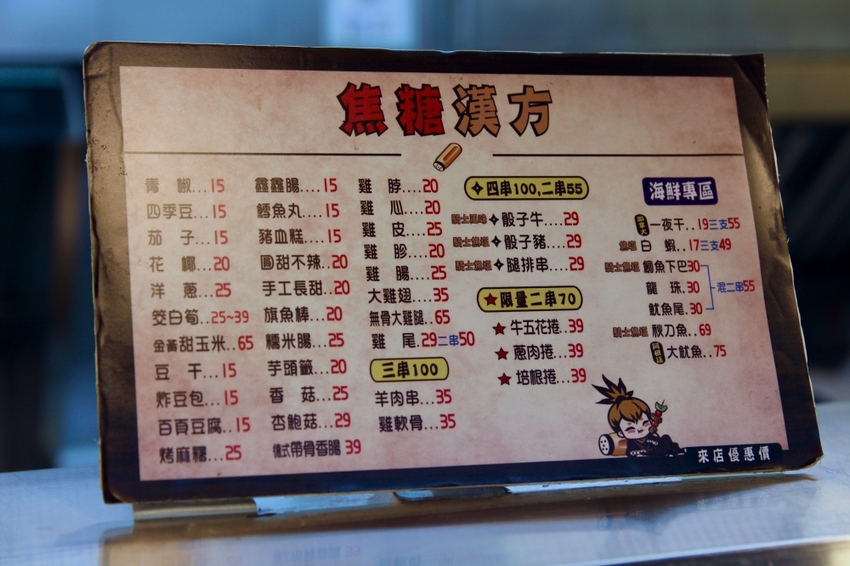 焦糖漢方
青 椒...15
四季豆...15
茄 子...15
花 椰...20
洋 蔥...25
茭白筍...25~39
金黃甜玉米...65
豆 干...15
炸豆包...15
百頁豆腐..15
烤麻糬...25
鑫鑫腸....15
鱈魚丸...15
豬血糕....15
圓甜不辣..20
手工長甜..20
旗魚棒...20
糯米腸...25
芋頭籤...20
香 菇...25
杏鮑菇...29
德式帶骨香腸 39
雞 脖...20
雞 心...20
雞 皮...25
雞 胗...20
雞 腸...25
大雞翅...35
無骨大雞腿..65
雞 尾..29二串50
三串100
羊肉串...35
雞軟骨...35
✧四串100,二串55
騎士風味✧骰子牛...29
騎士焦塩✧骰子豬...29
騎士焦塩✧腿排串...29
★限量二串70
★牛五花捲.39
★蔥肉捲...39
★培根捲...39
海鮮專區
一夜干..19三支55
焦塩 白 蝦..17三支49
騎士焦塩 鯛魚下巴30
龍 珠.30
魷魚尾.30
混二串55
騎士焦塩 秋刀魚..69
大魷魚..75
來店優惠價